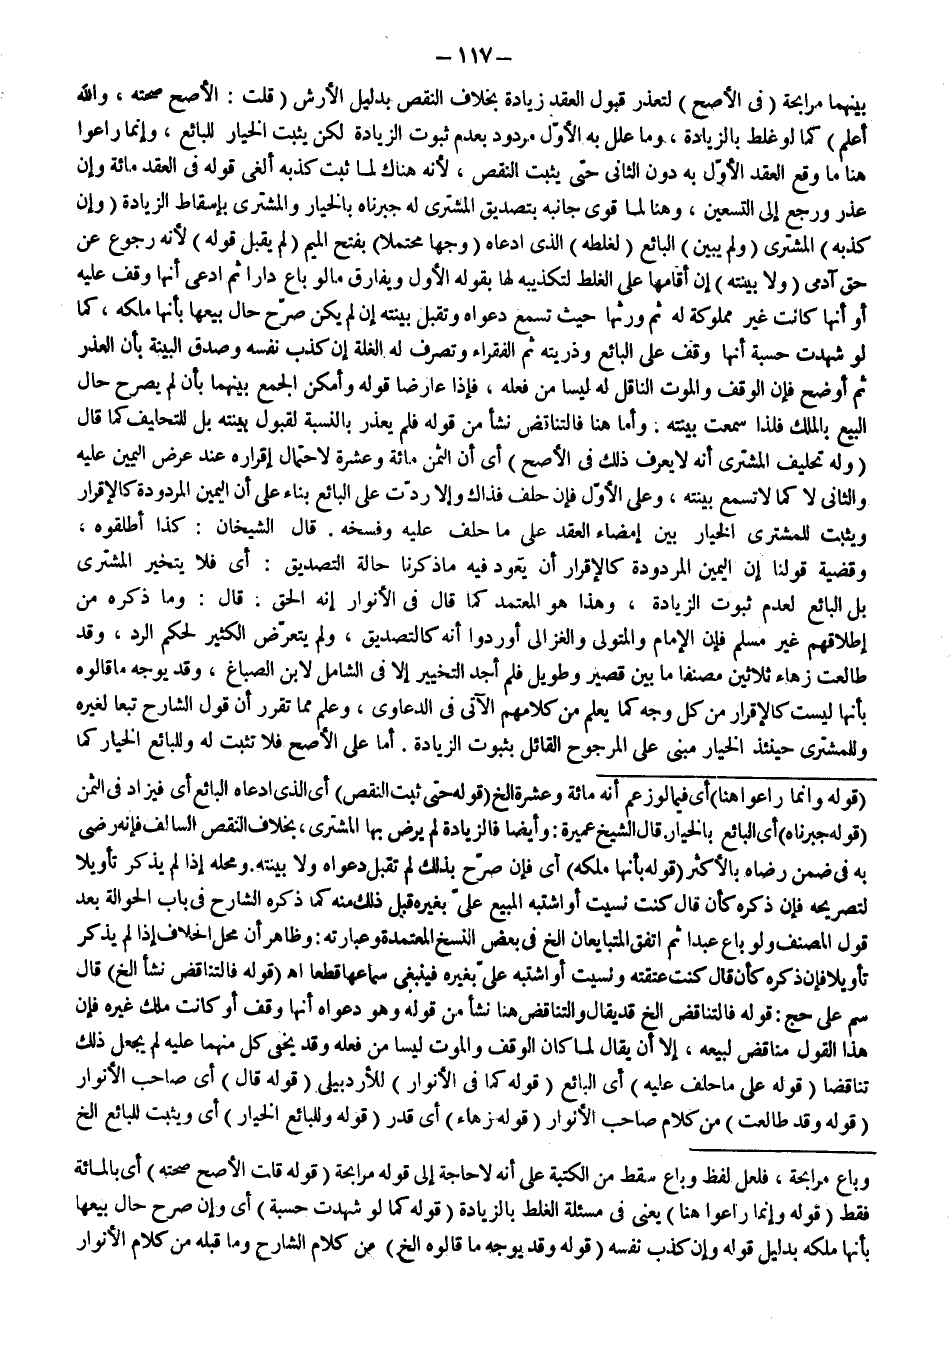 – ١١٧ –
بينهما مرابحة ( فى الأصح ) لتعذر قبول العقد زيادة بخلاف النقص بدليل الأرش ( قلت : الأصح صحته ، والله
أعلم ) كما لو غلط بالزيادة ، وما علل به الأوّل مردود بعدم ثبوت الزيادة لكن يثبت الخيار للبائع ، وإنما راعوا
هنا ما وقع العقد الأوّل به دون الثانى حتّى يثبت النقص ، لأنه هناك لما ثبت كذبه ألغى قوله فى العقد مائة وإن
عذر ورجع إلى التسعين ، وهنا لما قوى جانبه بتصديق المشترى له جبرناه بالخيار والمشترى بإسقاط الزيادة ( وإن
كذبه ) المشترى ( ولم يبين ) البائع ( لغلطه ) الذى ادعاه ( وجها محتملا ) بفتح الميم ( لم يقبل قوله ) لأنه رجوع عن
حق آدمى ( ولا بينته ) إن أقامها على الغلط لتكذيبه لها بقوله الأول ويفارق مالو باع دارا ثم ادعى أنها وقف عليه
أو أنها كانت غير مملوكة له ثم ورثها حيث تسمع دعواه وتقبل بينته إن لم يكن صرّح حال بيعها بأنها ملكه ، كما
لو شهدت حسبة أنها وقف على البائع وذريته ثم الفقراء وتصرف له الغلة إن كذب نفسه وصدق البينة بأن العذر
ثم أوضح فإن الوقف والموت الناقل له ليسا من فعله ، فإذا عارضا قوله وأمكن الجمع بينهما بأن لم يصرح حال
البيع بالملك فلذا سمعت بينته . وأما هنا فالتناقض نشأ من قوله فلم يعذر بالنسبة لقبول بينته بل للتحايف كما قال
( وله تحليف المشترى أنه لا يعرف ذلك فى الأصح ) أى أن الثمن مائة وعشرة لاحتمال إقراره عند عرض اليمين عليه
والثانى لا كما لا تسمع بينته ، وعلى الأوّل فإن حلف فذاك وإلا ردّت على البائع بناء على أن اليمين المردودة كالإقرار
ويثبت للمشترى الخيار بين إمضاء العقد على ما حلف عليه وفسخه . قال الشيخان : كذا أطلقوه ،
وقضية قولنا إن اليمين المردودة كالإقرار أن يعود فيه ماذكرنا حالة التصديق : أى فلا يتخير المشترى
بل البائع لعدم ثبوت الزيادة ، وهذا هو المعتمد كما قال فى الأنوار إنه الحق . قال : وما ذكره من
إطلاقهم غير مسلم فإن الإمام والمتولى والغزالى أوردوا أنه كالتصديق ، ولم يتعرّض الكثير لحكم الرد ، وقد
طالعت زهاء ثلاثين مصنفا ما بين قصير وطويل فلم أجد التخيير إلا فى الشامل لابن الصباغ ، وقد يوجه ماقالوه
بأنها ليست كالإقرار من كل وجه كما يعلم من كلامهم الآتى فى الدعاوى ، وعلم مما تقرر أن قول الشارح تبعا لغيره
وللمشترى حينئذ الخيار مبنى على المرجوح القائل بثبوت الزيادة . أما على الأصح فلا تثبت له وللبائع الخيار كما
( قوله وانما راعوا هنا ) أى فيمالو زعم أنه مائة وعشرة الخ ( قوله حتّى ثبت النقص ) أى الذى ادعاه البائع أى فيزاد فى الثمن
( قوله جبرناه ) أى البائع بالخيار . قال الشيخ عميرة : وأيضا فالزيادة لم يرض بها المشترى ، بخلاف النقص السالف فإنه رضى
به فى ضمن رضاه بالأكثر ( قوله بأنها ملكه ) أى فإن صرّح بذلك لم تقبل دعواه ولا بينته . ومحله إذا لم يذكر تأويلا
لتصريحه فإن ذكره كأن قال كنت نسيت أو اشتبه المبيع علىّ بغيره قبل ذلك منه كما ذكره الشارح فى باب الحوالة بعد
قول المصنف ولو باع عبدا ثم اتفق المتبايعان الخ فى بعض النسخ المعتمدة وعبارته : وظاهر أن محل الخلاف إذا لم يذكر
تأويلا فإن ذكره كأن قال كنت عتقته ونسيت أو اشتبه علىّ بغيره فينبغى سماعها قطعا اه ( قوله فالتناقض نشأ الخ ) قال
سم على حج : قوله فالتناقض الخ قد يقال والتناقض هنا نشأ من قوله وهو دعواه أنها وقف أو كانت ملك غيره فإن
هذا القول مناقض لبيعه ، إلا أن يقال لما كان الوقف والموت ليسا من فعله وقد يخفى كل منهما عليه لم يجعل ذلك
تناقضا ( قوله على ماحلف عليه ) أى البائع ( قوله كما فى الأنوار ) للأردبيلى ( قوله قال ) أى صاحب الأنوار
( قوله وقد طالعت ) من كلام صاحب الأنوار ( قوله زهاء ) أى قدر ( قوله وللبائع الخيار ) أى ويثبت للبائع الخ
وباع مرابحة ، فلعل لفظ وباع سقط من الكتبة على أنه لا حاجة إلى قوله مرابحة ( قوله قلت الأصح صحته ) أى بالمائة
فقط ( قوله وإنما راعوا هنا ) يعنى فى مسئلة الغلط بالزيادة ( قوله كما لو شهدت حسبة ) أى وإن صرح حال بيعها
بأنها ملكه بدليل قوله وإن كذب نفسه ( قوله وقد يوجه ما قالوه الخ ) من كلام الشارح وما قبله من كلام الأنوار